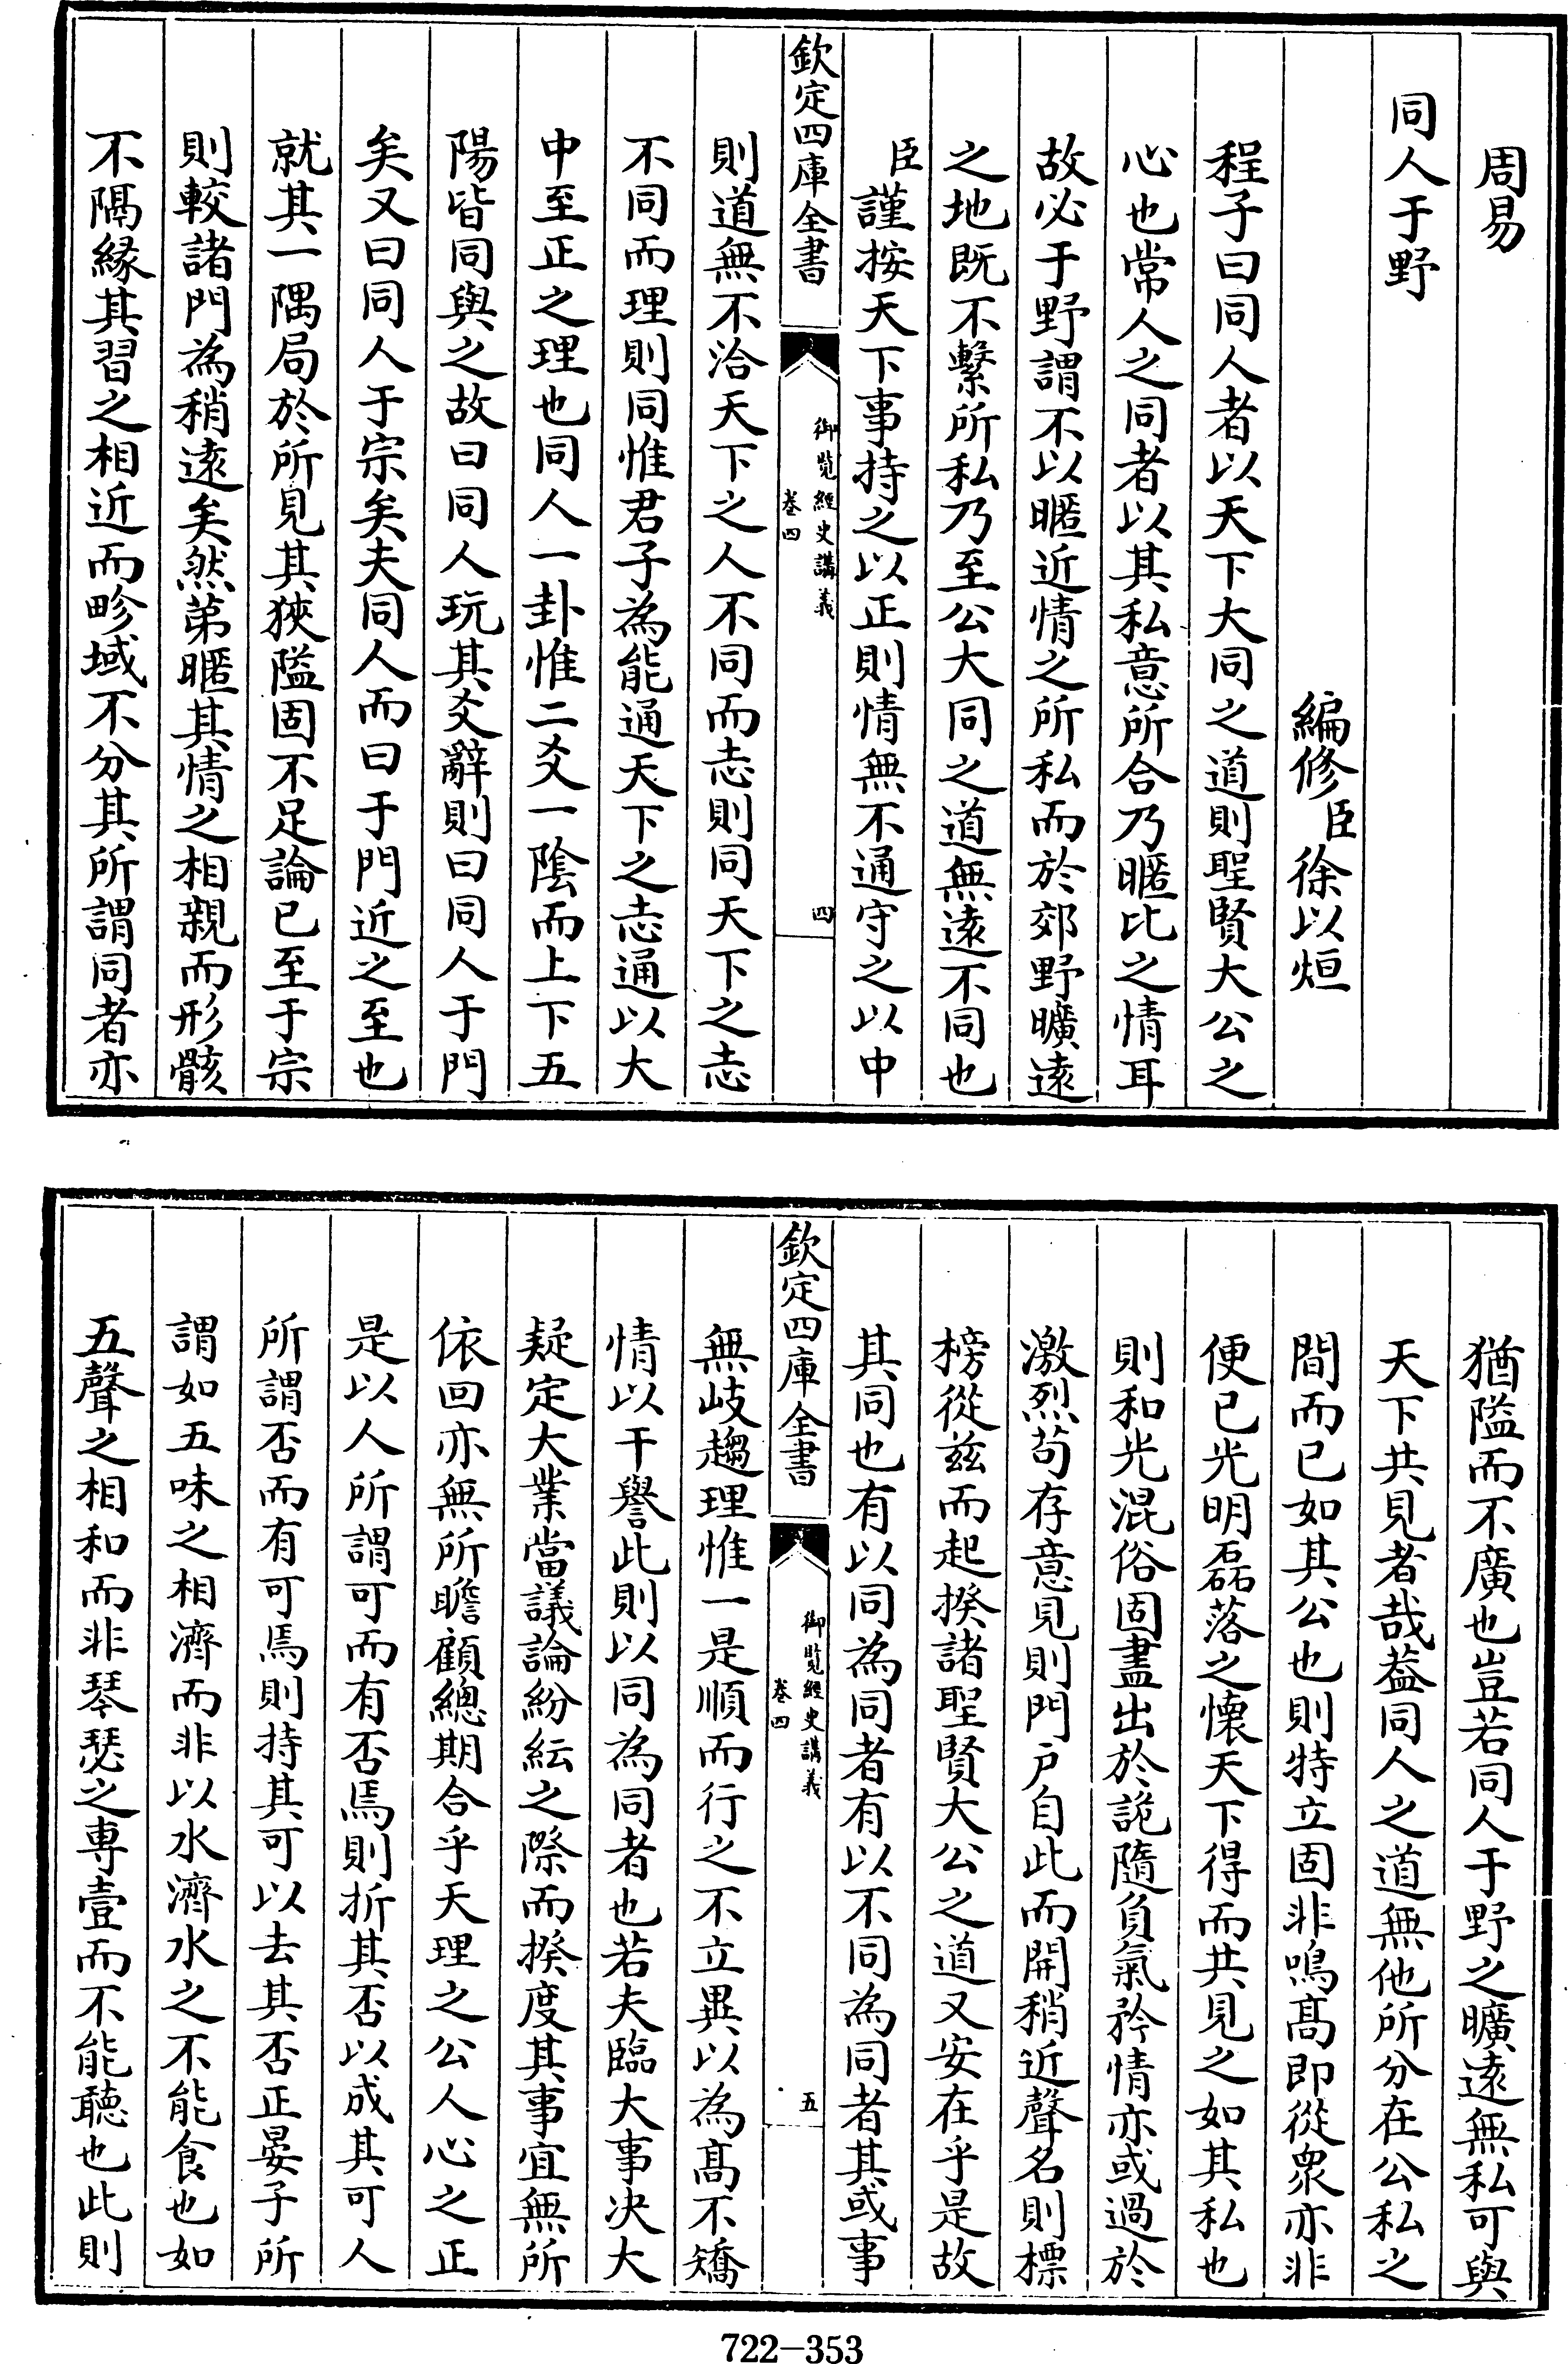 周易
同人于野
編修臣徐以烜
程子曰同人者以天下大同之道則聖賢大公之
心也常人之同者以其私意所合乃暱比之情耳
故必于野謂不以暱近情之所私而於郊野曠遠
之地既不繫所私乃至公大同之道無遠不同也
臣謹按天下事持之以正則情無不通守之以中
欽定四庫全書
御覽經史講義
卷四
四
則道無不洽天下之人不同而志則同天下之志
不同而理則同惟君子為能通天下之志通以大
中至正之理也同人一卦惟二爻一陰而上下五
陽皆同與之故曰同人玩其爻辭則曰同人于門
矣又曰同人于宗矣夫同人而曰于門近之至也
就其一隅局於所見其狹隘固不足論已至于宗
則較諸門為稍遠矣然第暱其情之相親而形骸
不隔緣其習之相近而畛域不分其所謂同者亦
猶隘而不廣也豈若同人于野之曠遠無私可與
天下共見者哉葢同人之道無他所分在公私之
間而已如其公也則特立固非鳴髙即從衆亦非
便已光明磊落之懷天下得而共見之如其私也
則和光混俗固盡出於詭隨負氣矜情亦或過於
激烈苟存意見則門户自此而開稍近聲名則標
榜從兹而起揆諸聖賢大公之道又安在乎是故
其同也有以同為同者有以不同為同者其或事
欽定四庫全書
御覽經史講義
卷四
五
無岐趨理惟一是順而行之不立異以為髙不矯
情以干譽此則以同為同者也若夫臨大事决大
疑定大業當議論紛紜之際而揆度其事宜無所
依回亦無所瞻顧總期合乎天理之公人心之正
是以人所謂可而有否焉則折其否以成其可人
所謂否而有可焉則持其可以去其否正晏子所
謂如五味之相濟而非以水濟水之不能食也如
五聲之相和而非琴瑟之専壹而不能聽也此則
722-353